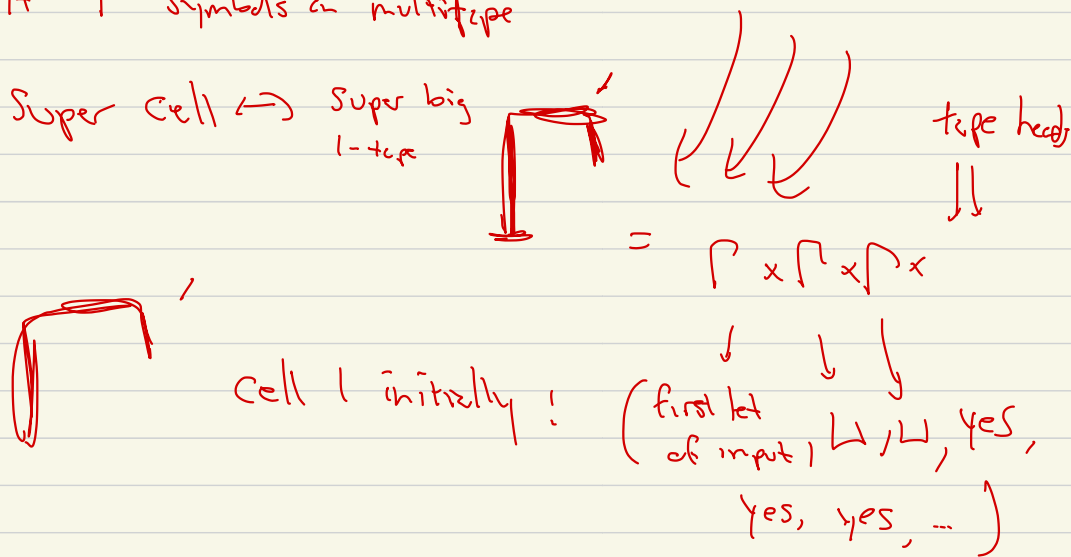 symbols in multitape
Super Cell ↔ Super big
1-tape
tape heads
Γ' = Γ × Γ × Γ ×
Γ'
Cell 1 initially: (first let
of input, ⊔, ⊔, yes,
yes, yes, ...)